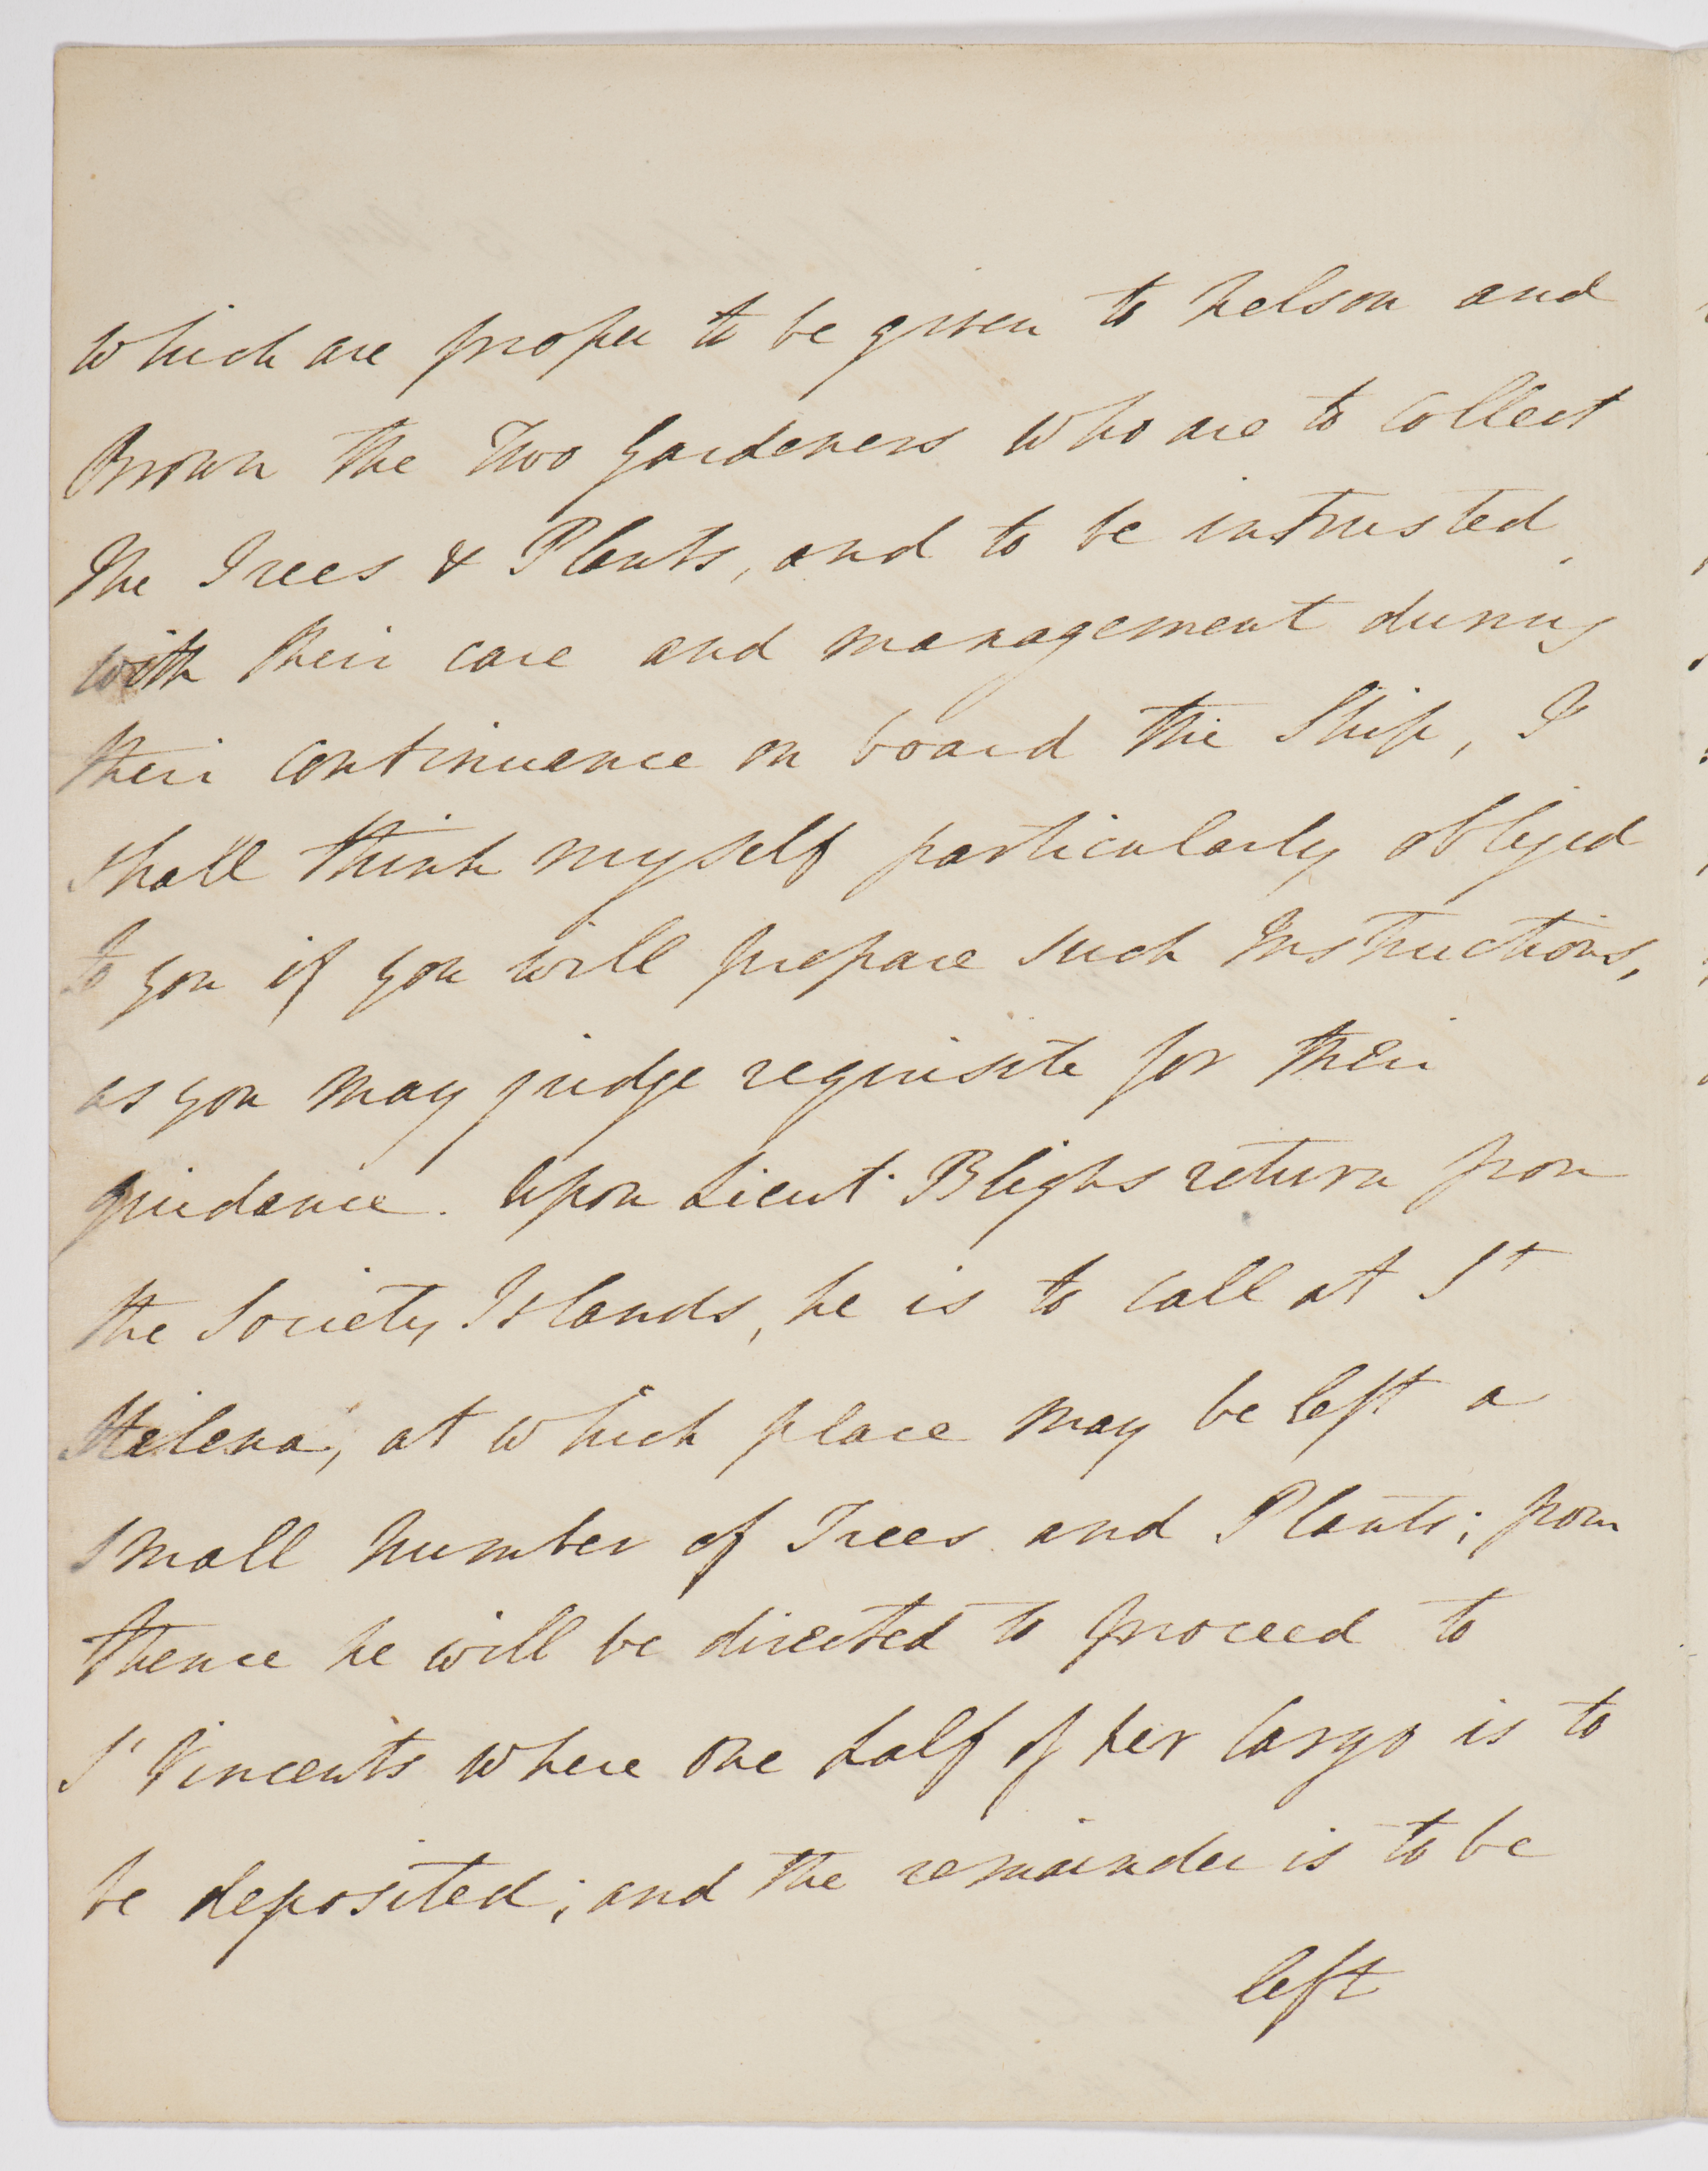 which are proper to be given to Nelson and
Brown the Two Gardeners who are to collect
the Trees & Plants, and to be intrusted
with their care and management during
their continuance on board the Ship, I
shall think myself particularly obliged
to you if you will prepare such Instructions,
as you may judge requisite for their
guidance. Upon Lieut. Blighs return from
the Society Islands, he is to call at St
Helena, at which place may be left a
small number of Trees and Plants; from
thence he will be directed to proceed to
St Vincents where one half of her Cargo is to
be deposited; and the remainder is to be
left